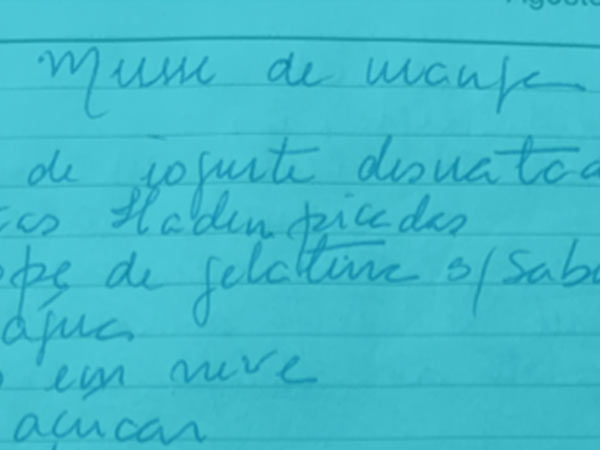 Agosto
Musse de manga
de iogurte desnatad
as Haden picadas
ope de gelatina s/ sabo
água
em neve
açúcar